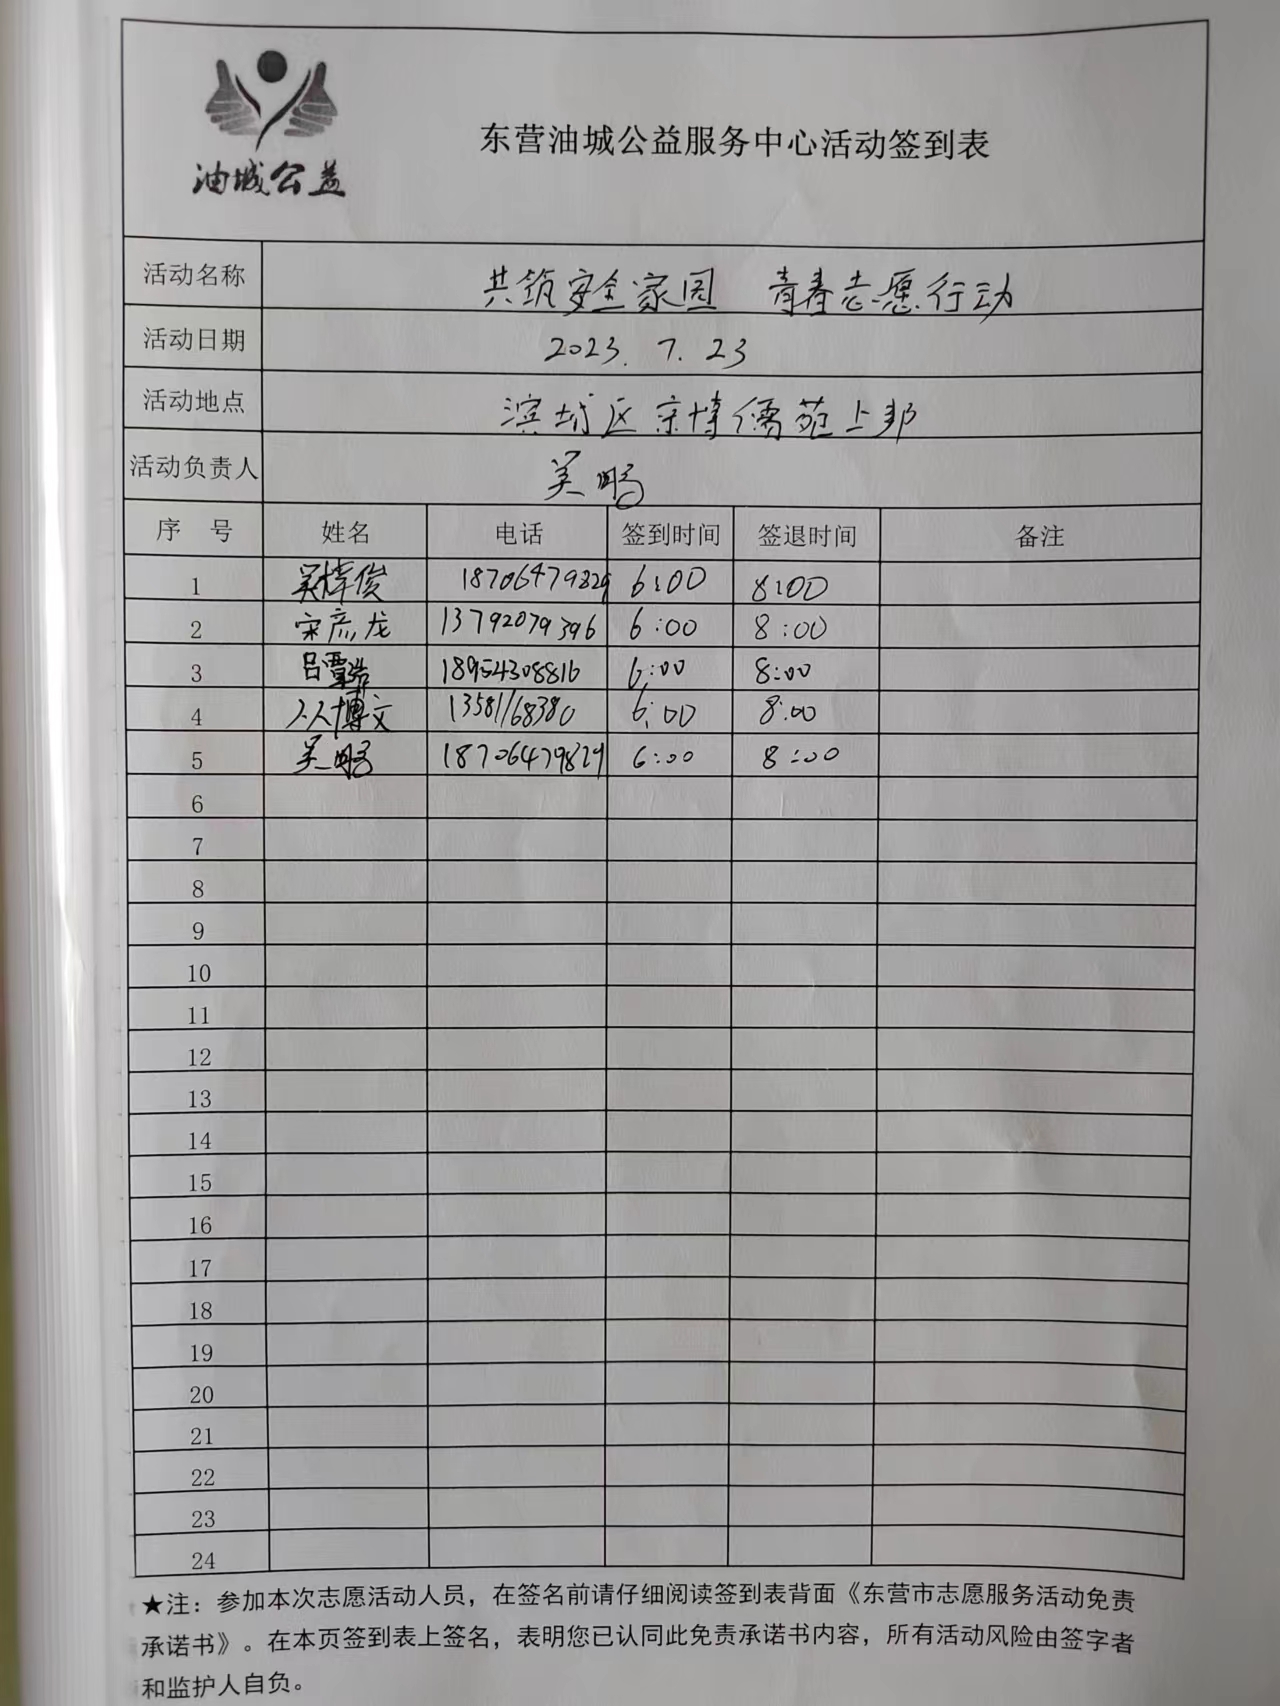 油城公益
东营油城公益服务中心活动签到表
活动名称 共筑安全家园 青春志愿行动
活动日期 2023.7.23
活动地点 滨城区宗博儒苑上邦
活动负责人 吴鹏
序 号 姓名 电话 签到时间 签退时间 备注
1 吴梓俊 18706479829 6:00 8:00
2 宋彦龙 13792079396 6:00 8:00
3 吕 18954308816 6:00 8:00
4 从博文 13581168380 6:00 8:00
5 吴鹏 18706479829 6:00 8:00
6
7
8
9
10
11
12
13
14
15
16
17
18
19
20
21
22
23
24
★注：参加本次志愿活动人员，在签名前请仔细阅读签到表背面《东营市志愿服务活动免责
承诺书》。在本页签到表上签名，表明您已认同此免责承诺书内容，所有活动风险由签字者
和监护人自负。